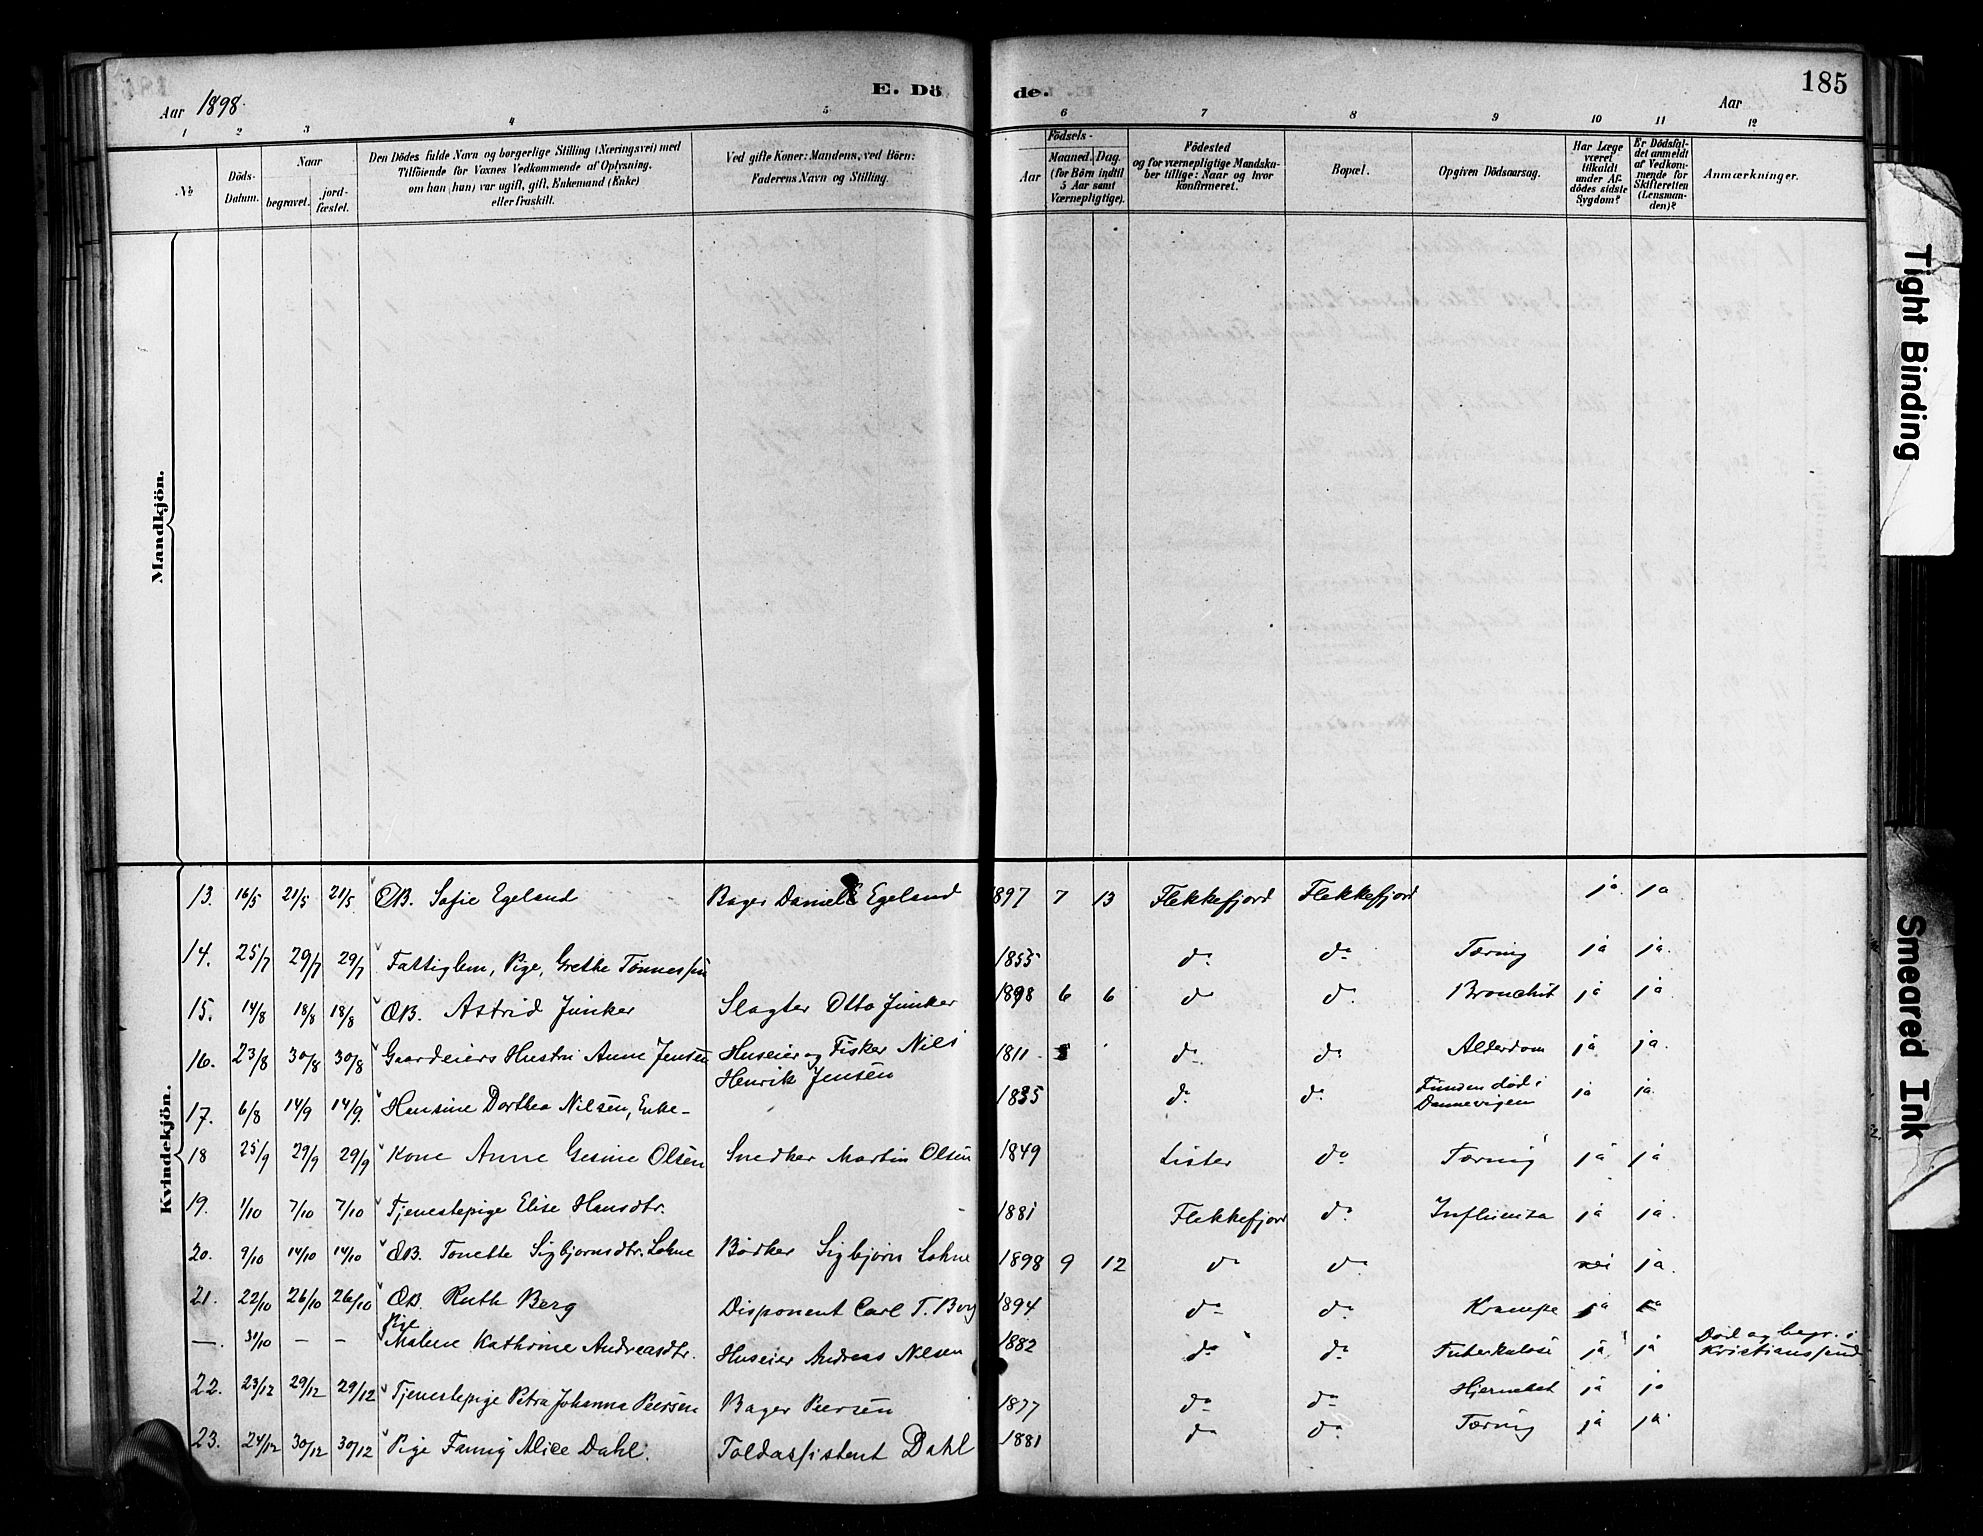 185
E. Döde.
Aar 1898.
Aar
1 2 3 4 5 6 7 8 9 10 11 12
No
Döds-Datum.
Naar
begravet.
jord-fæstet.
Den Dödes fulde Navn og borgerlige Stilling (Næringsvei) med
Tilföiende for Voxnes Vedkommende af Oplysning,
om han (hun) var ugift, gift, Enkemand (Enke)
eller fraskilt.
Ved gifte Koner: Mandens, ved Börn:
Faderens Navn og Stilling.
Födsels-
Aar
Maaned. Dag.
(for Börn indtil
5 Aar samt
Værnepligtige).
Födested
og for værnepligtige Mandska-
ber tillige: Naar og hvor
konfirmeret.
Bopæl.
Opgiven Dödsaarsag.
Har Læge
været
tilkaldt
under Af-
dödes sidste
Sygdom?
Er Dödsfal-
det anmeldt
af Vedkom-
mende for
Skifteretten
(Lensman-
den)?
Anmærkninger.
Mandkjön.
Kvindekjön.
13. 16/5 21/5 21/5 ÆB. Sofie Egeland Bager Daniel Egeland 1897 7 13 Flekkefjord Flekkefjord ja ja
14. 25/7 29/7 29/7 Fattiglem, Pige, Grethe Tönnessen 1855 do do Tæring ja ja.
15. 14/8 18/8 18/8 ÆB. Astrid Junker Slagter Otto Junker 1898 6 6 do do Bronchit ja ja
16. 23/8 30/8 30/8 Gaardeiers Hustru Anne Jensen Huseier og Fisker Nils
Henrik Jensen 1811 do do Alderdom ja ja.
17. 6/8 14/9 14/9. Hansine Dorthea Nilsen, Enke- 1835 do do Funden död i
Dannevigen ja ja.
18 25/9 29/9 29/9 Kone Anne Gesine Olsen Snedker Martin Olsen 1849 Lister do Tæring ja ja
19. 1/10 7/10 7/10 Tjenestepige Elise Hansdtr. 1881 Flekkefjord do Influenza ja ja.
20. 9/10 14/10 14/10 ÆB. Tonette Sigbjørnsdtr. Lohne Bödker Sigbjörn Lohne 1898 9 12 do do nei ja.
21. 22/10 26/10 26/10 ÆB. Ruth Berg Disponent Carl T. Berg 1894 do do Krampe ja ja
— 31/10 — — Pige
Malene Kathrine Andreasdtr. Huseier Andreas Nilsen 1882 do do Tuberkulose ja ja Död og begr. i
Kristianssand
22. 23/12 29/12 29/12 Tjenestepige Petra Johanna Peersen Bager Peersen 1877 do do Hjernebet ja ja
23. 24/12 30/12 30/12 Pige Fanny Alice Dahl. Toldassistent Dahl 1881 do do Tæring ja ja
Tight Binding
Smeared Ink